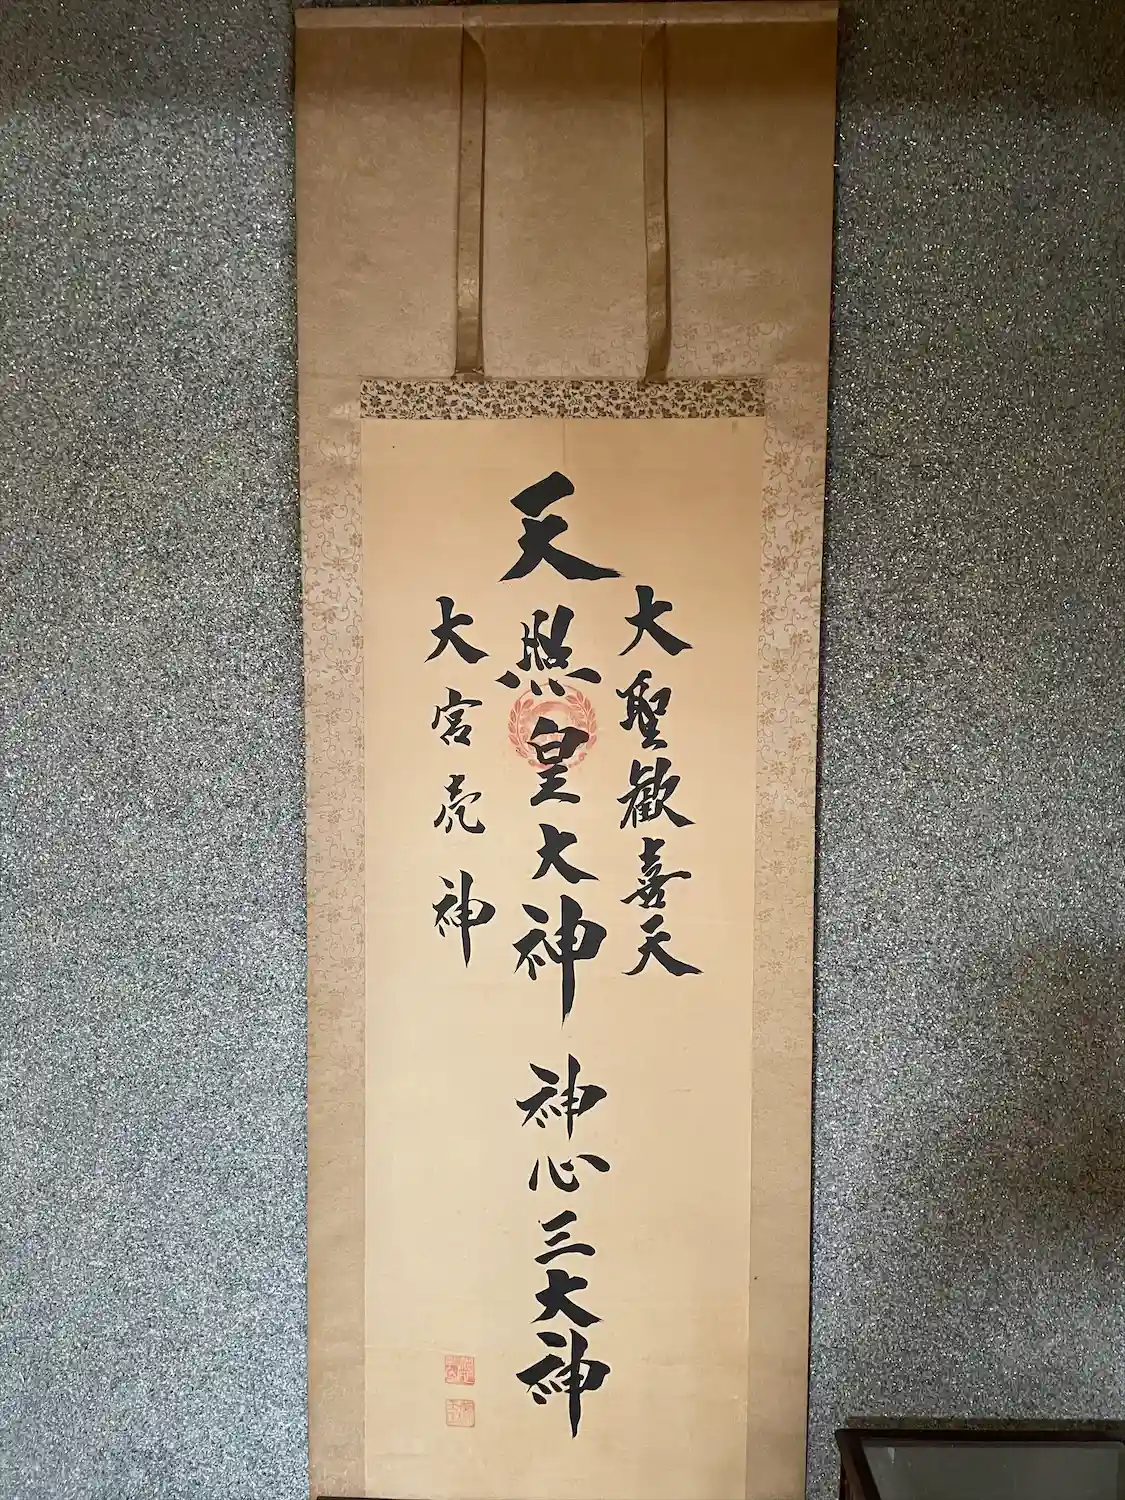 大聖歓喜天
天照皇大神
神心三大神
大宮売神